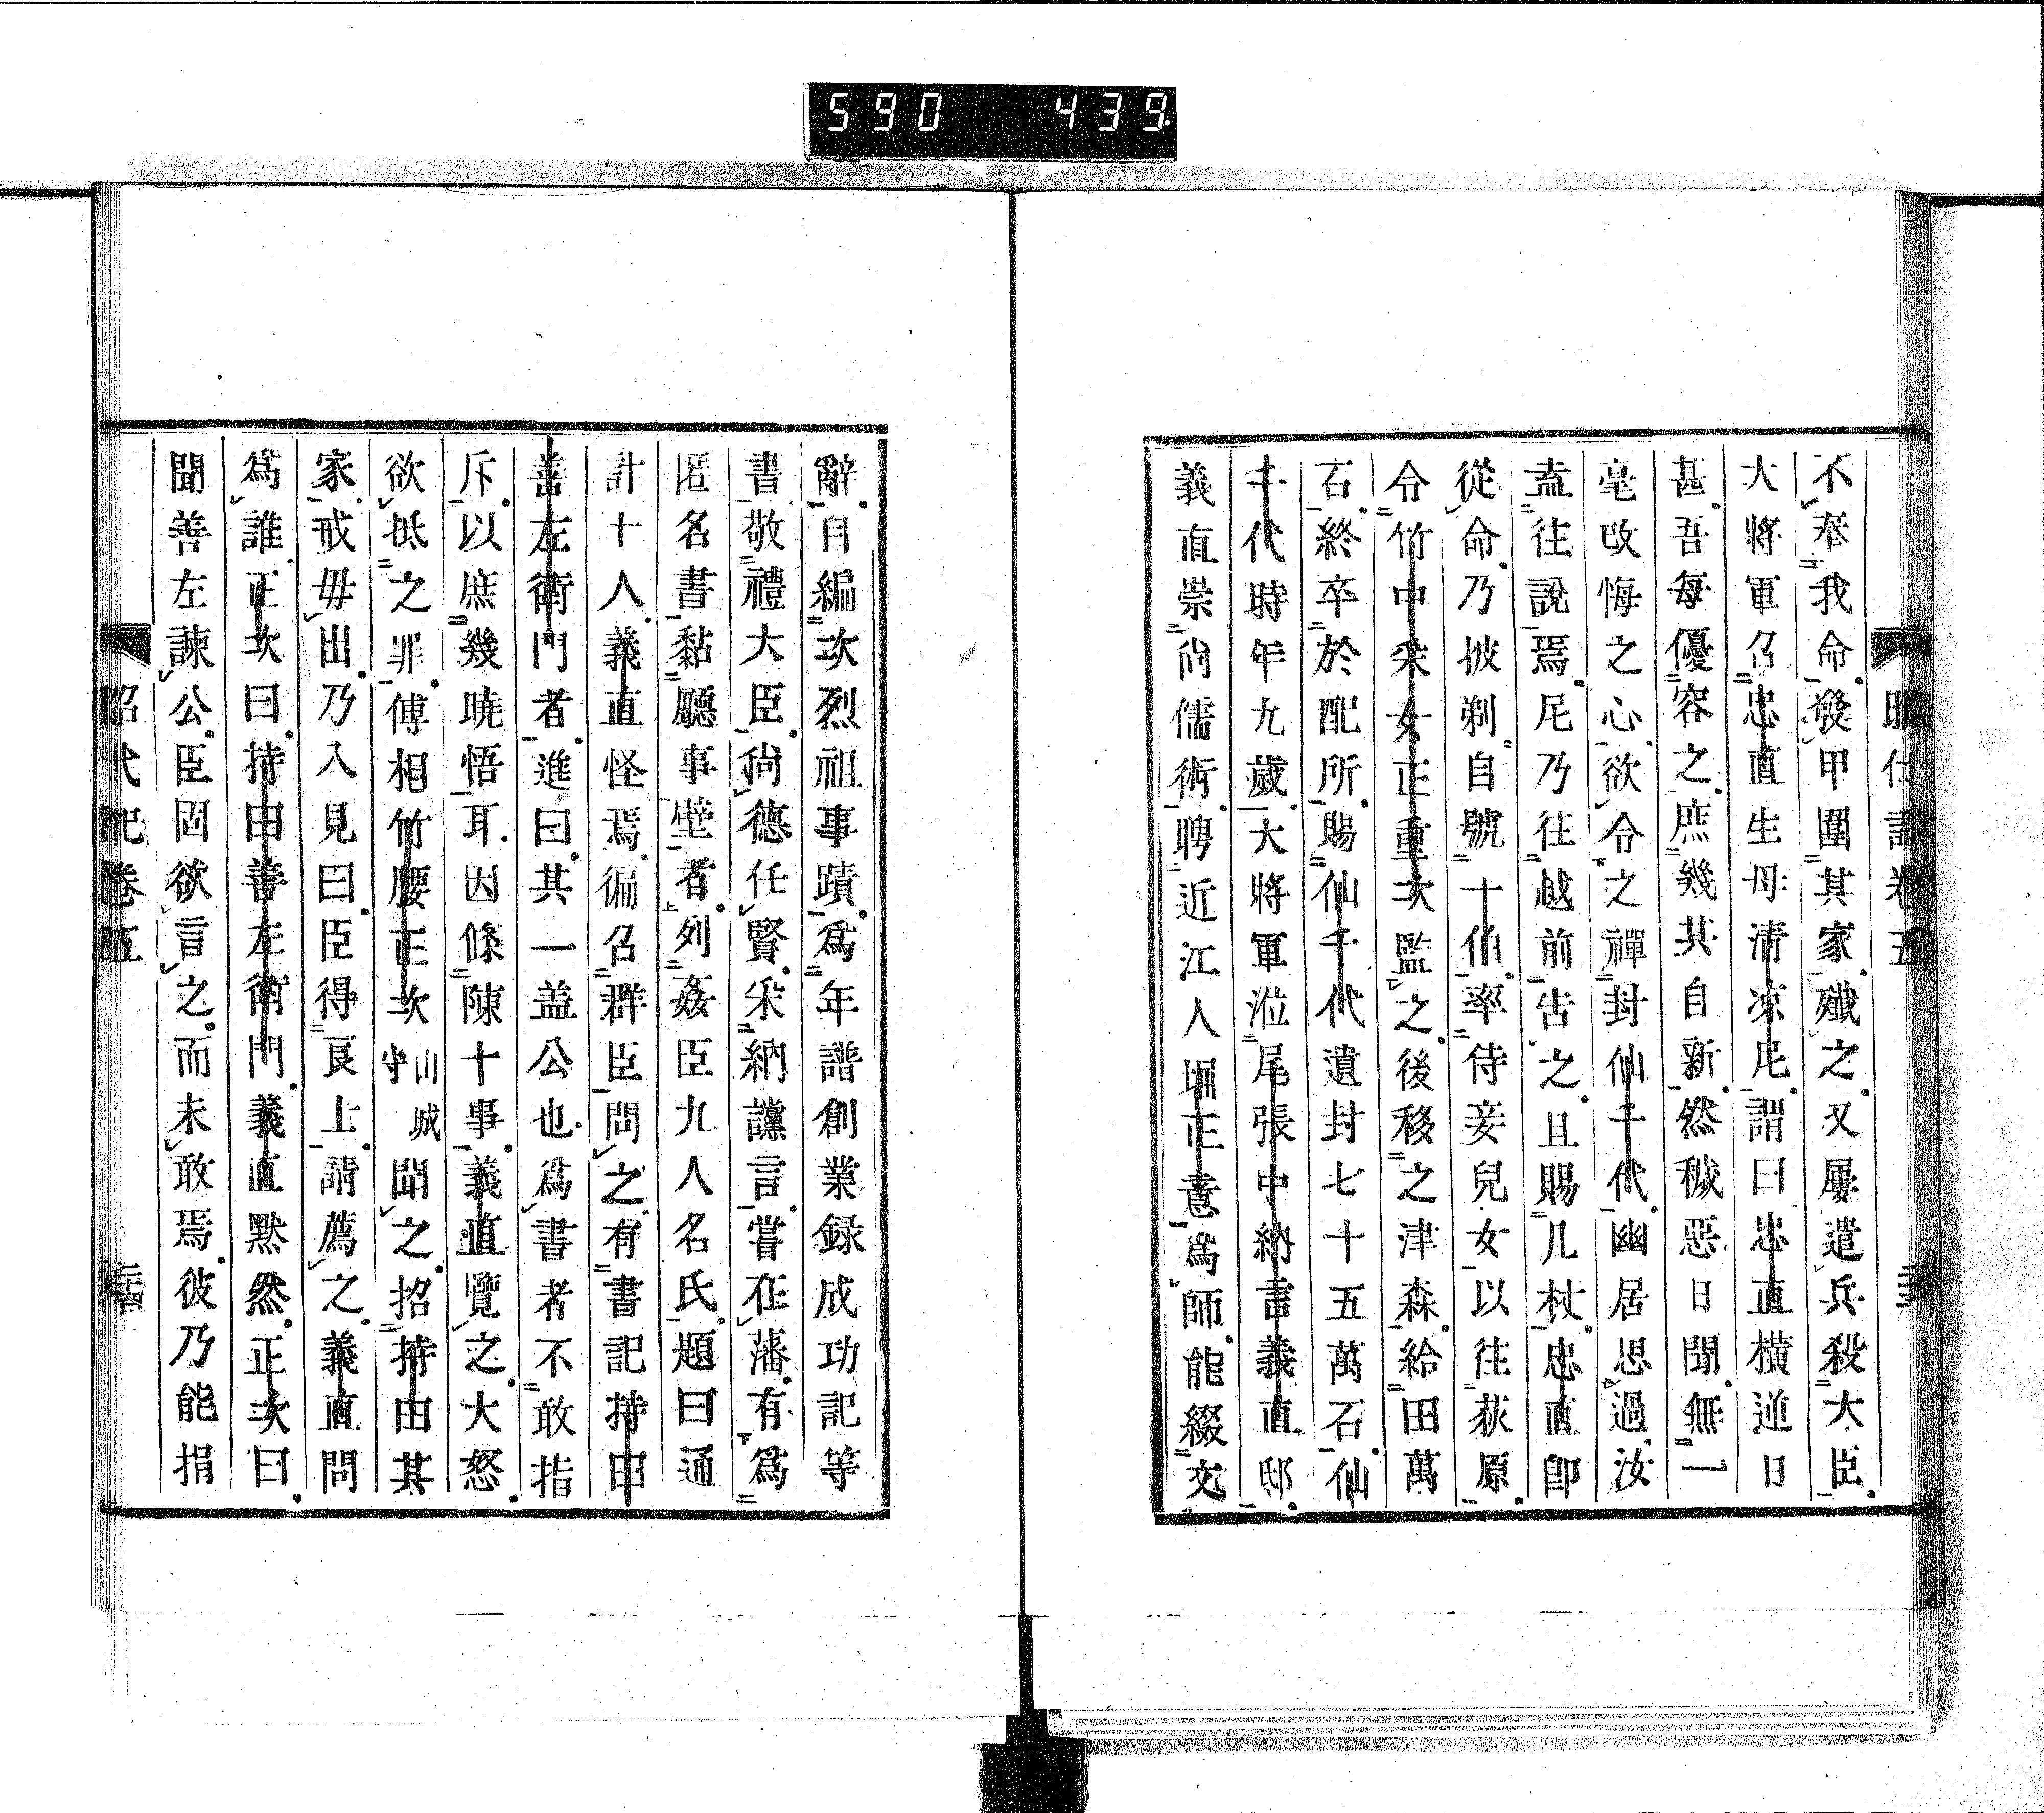 590 439
不奉我命發甲圍其家殲之又屢遣兵殺大臣
大將軍召忠直生母清凉尼謂曰忠直横逆日
甚吾每優容之庶幾其自新然穢惡日聞無一
毫改悔之心欲令之禪封仙千代幽居思過汝
盍往說焉尼乃往越前告之且賜几杖忠直即
從命乃披剃自號一伯率侍妾兒女以往萩原
令竹中采女正重次監之後移之津森給田萬
石終卒於配所賜仙千代遺封七十五萬石仙
千代時年九歲大將軍涖尾張中納言義直邸
義直崇尚儒術聘近江人堀正意為師能綴文
辭自編次烈祖事蹟為年譜創業録成功記等
書敬禮大臣尚德任賢采納讜言嘗在藩有為
匿名書黏廳事壁者列姦臣九人名氏題曰通
計十人義直怪焉徧召群臣問之有書記持田
善左衛門者進曰其一盖公也為書者不敢指
斥以庶幾曉悟耳因條陳十事義直覽之大怒
欲抵之罪傅相竹腰正次山城守聞之招持田其
家戒毋出乃入見曰臣得良士請薦之義直問
為誰正次曰持田善左衛門義直默然正次曰
聞善左諫公臣固欲言之而未敢焉彼乃能捐
昭代記卷五